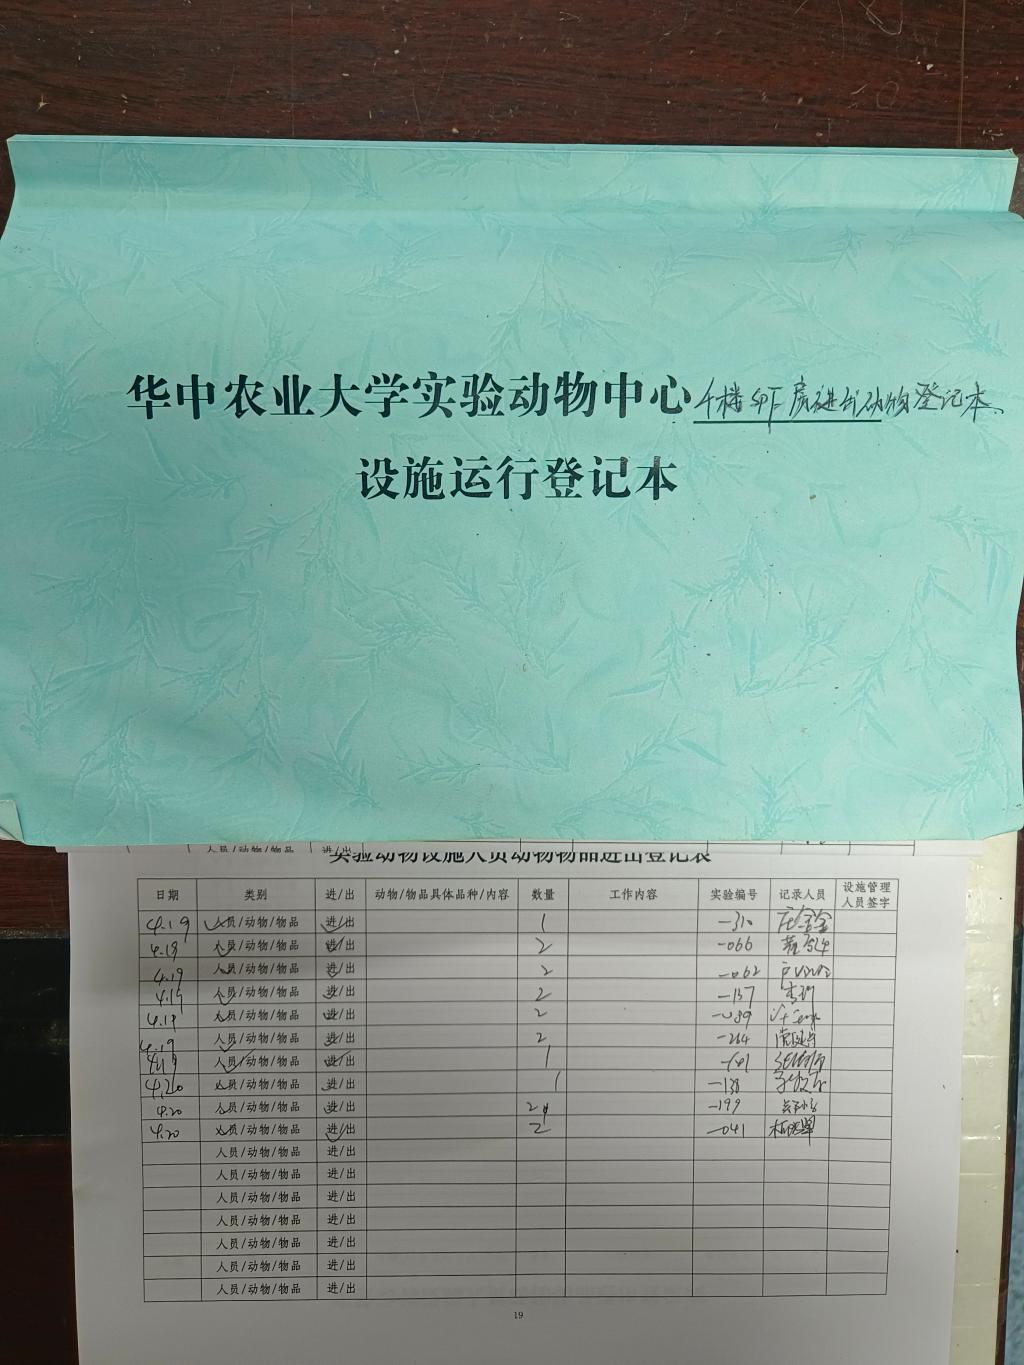 华中农业大学实验动物中心 楼SPF房进出动物登记本
设施运行登记本
人员/动物/物品 进/出
实验动物设施人员动物物品进出登记表
日期 类别 进/出 动物/物品具体品种/内容 数量 工作内容 实验编号 记录人员 设施管理人员签字
4.19 人员/动物/物品 进/出 1 -310
4.19 人员/动物/物品 进/出 2 -066
4.19 人员/动物/物品 进/出 2 -062
4.19 人员/动物/物品 进/出 2 -137
4.19 人员/动物/物品 进/出 2 -089
4.19 人员/动物/物品 进/出 2 -264
4.19 人员/动物/物品 进/出 1
4.20 人员/动物/物品 进/出 1 -138
4.20 人员/动物/物品 进/出 -199
4.20 人员/动物/物品 进/出 2 -041
人员/动物/物品 进/出
人员/动物/物品 进/出
人员/动物/物品 进/出
人员/动物/物品 进/出
人员/动物/物品 进/出
人员/动物/物品 进/出
人员/动物/物品 进/出
19